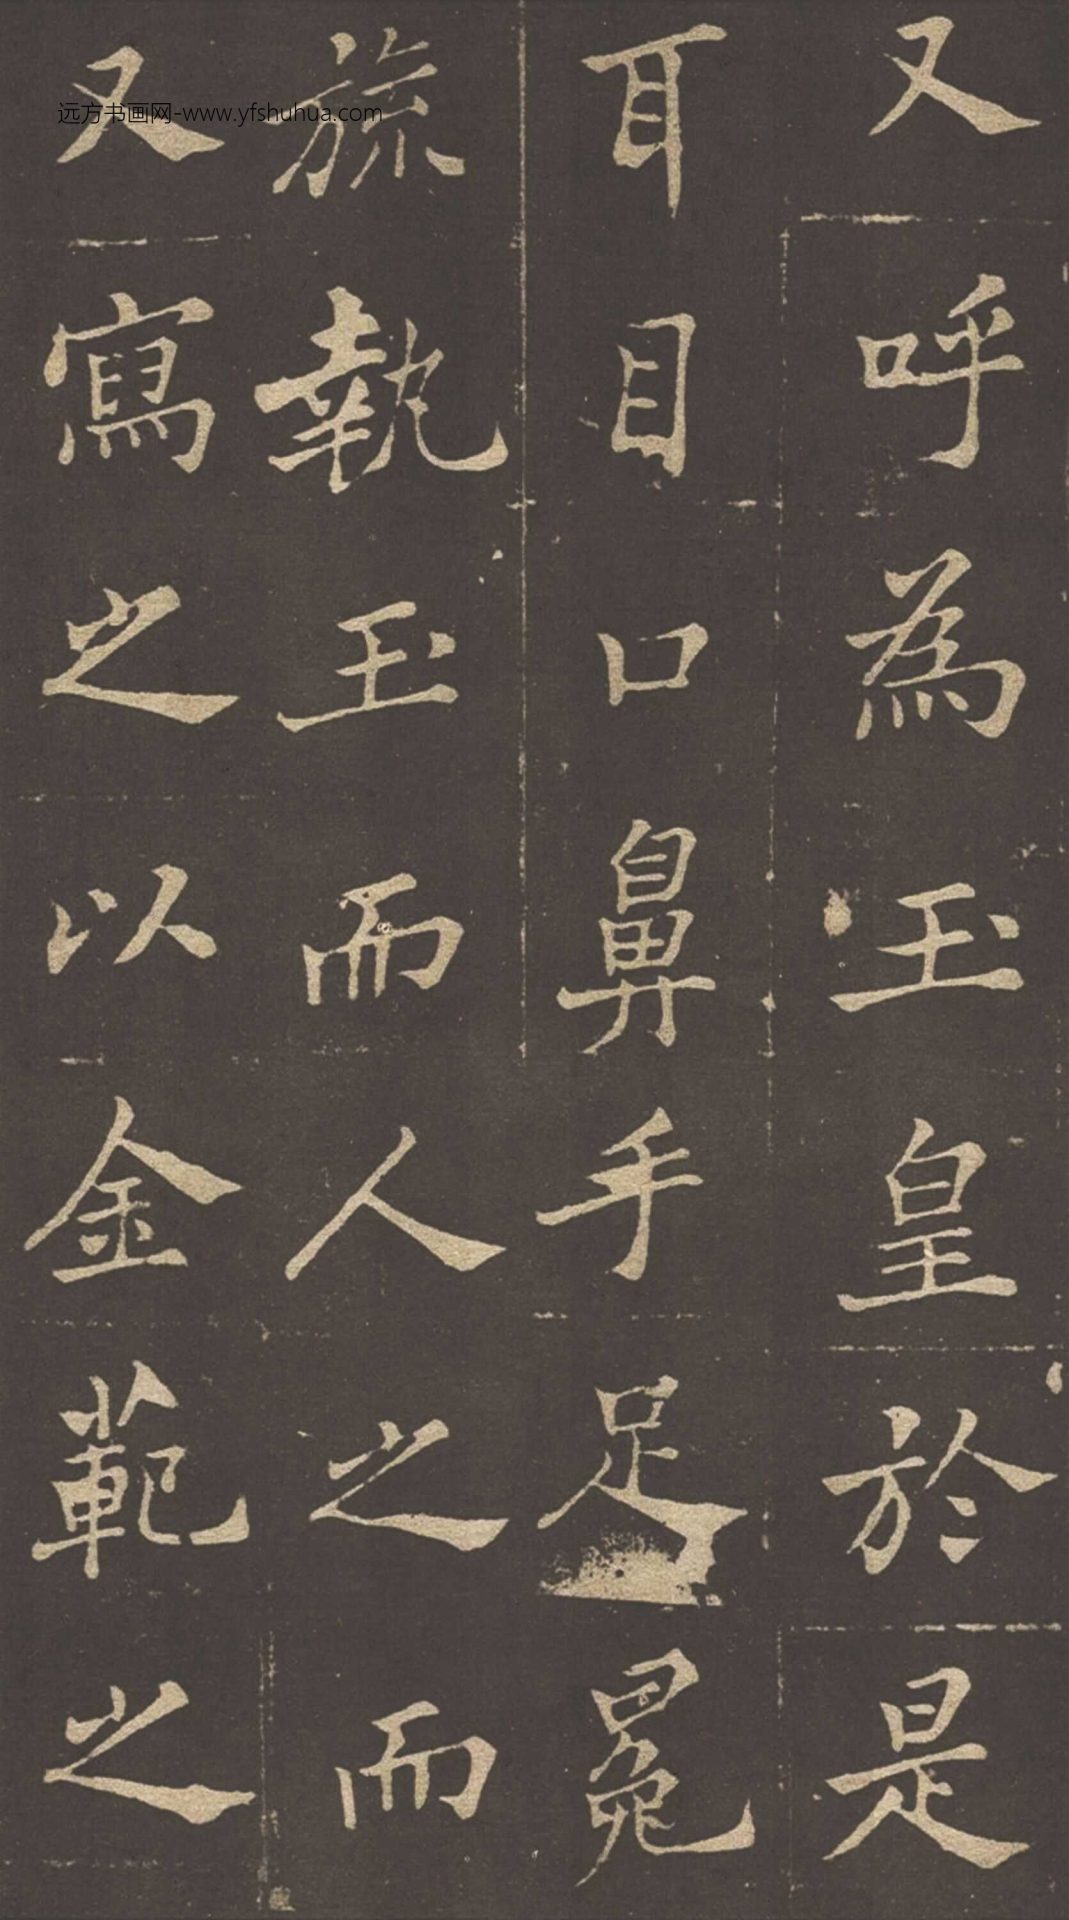 又呼為玉皇於是
耳目口鼻手足冕
旒執玉而人之而
又寫之以金範之
远方书画网-www.yfshuhua.com